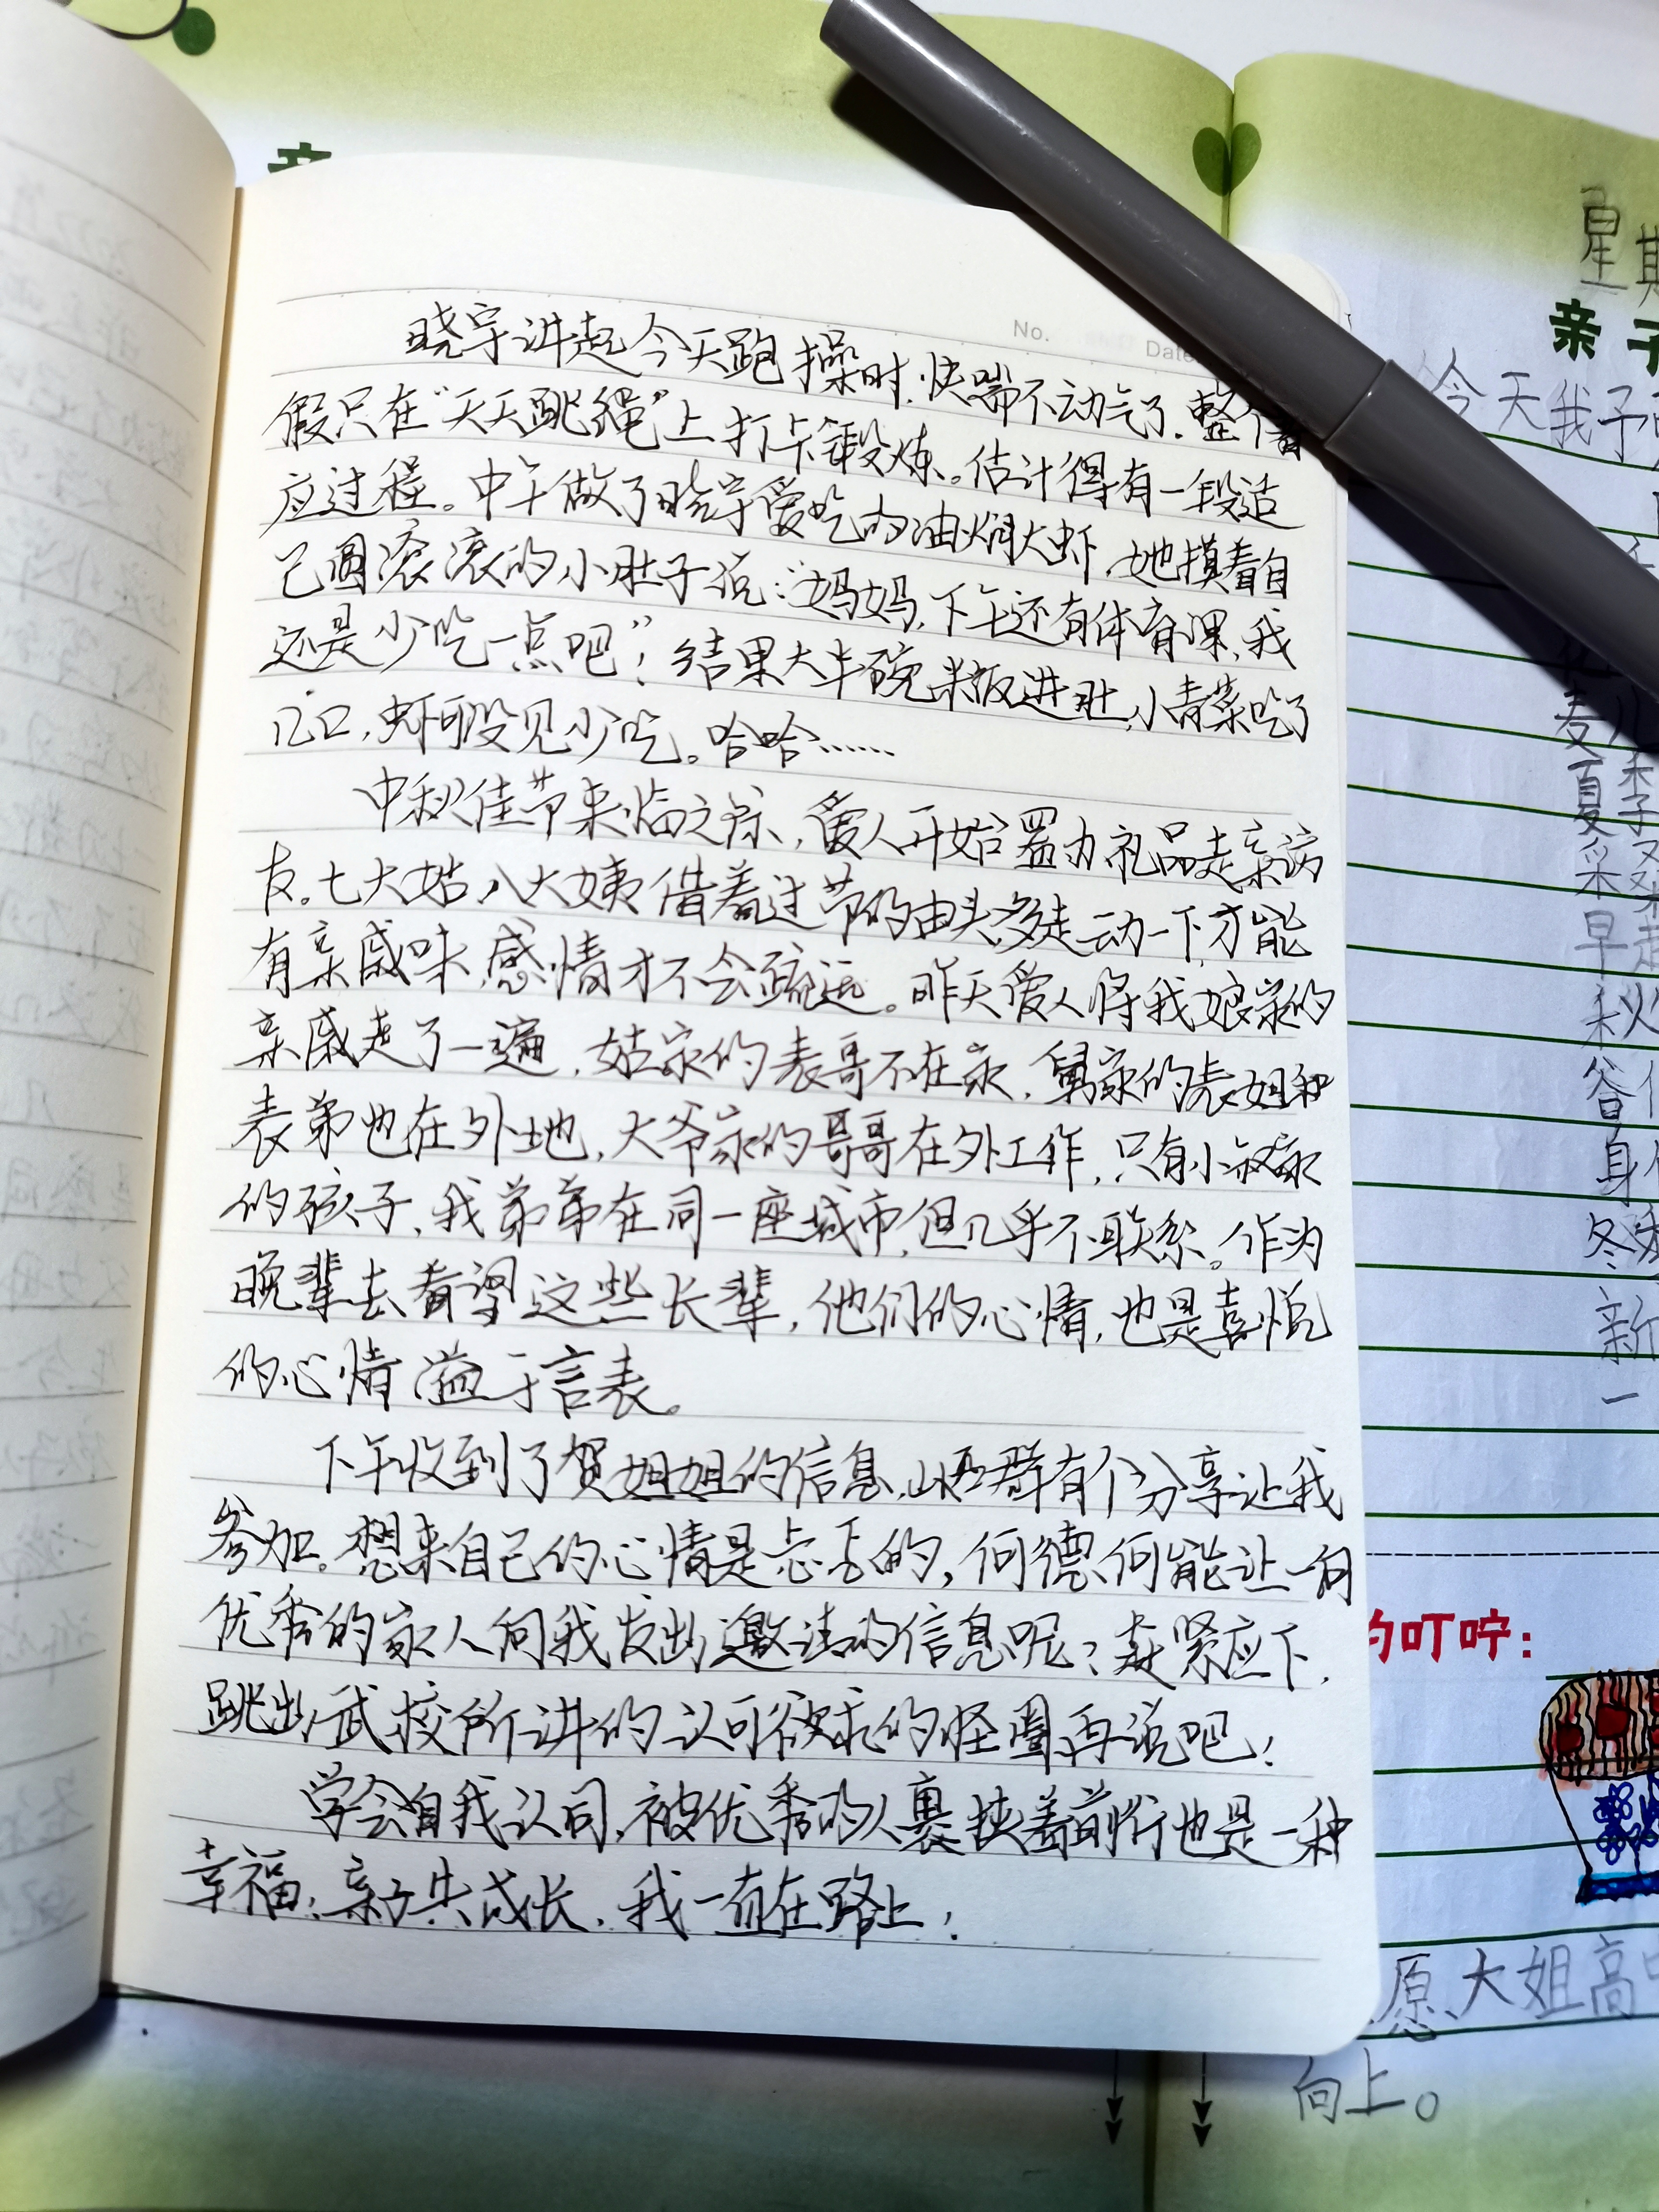 No.
Date
晓宇讲起今天跑操时,快喘不动气了.整个
假只在“天天跳绳”上打卡锻炼。估计得有一段适
应过程。中午做了晓宇爱吃的油焖大虾,她摸着自
己圆滚滚的小肚子说:“妈妈,下午还有体育课,我
还是少吃一点吧”!结果大半碗米饭进肚,小青菜吃了
几口,虾可没见少吃。哈哈……
中秋佳节来临之际,爱人开始置办礼品走亲访
友。七大姑,八大姨借着过节的由头多走动一下,才能
有亲戚味,感情才不会疏远。昨天爱人将我娘家的
亲戚走了一遍,姑家的表哥不在家,舅家的表姐和
表弟也在外地,大爷家的哥哥在外工作,只有小叔家
的孩子、我弟弟在同一座城市,但几乎不联系。作为
晚辈去看望这些长辈,他们的心情,也是喜悦
的心情溢于言表。
下午收到了贺姐姐的信息,群有个分享让我
参加。想来自己的心情是忐忑的,何德何能让一向
优秀的家人向我发出邀请的信息呢?赶紧应下,
跳出武校所讲的认可欲求的怪圈再说吧!
学会自我认同,被优秀的人裹挟着前行也是一种
幸福;亲子共成长,我一直在路上!
亲
星期
亲子
今天我子
麦儿
夏季
采桑
早起
秋
谷
身
冬
新
一
的叮咛:
原、大姐高
向上。